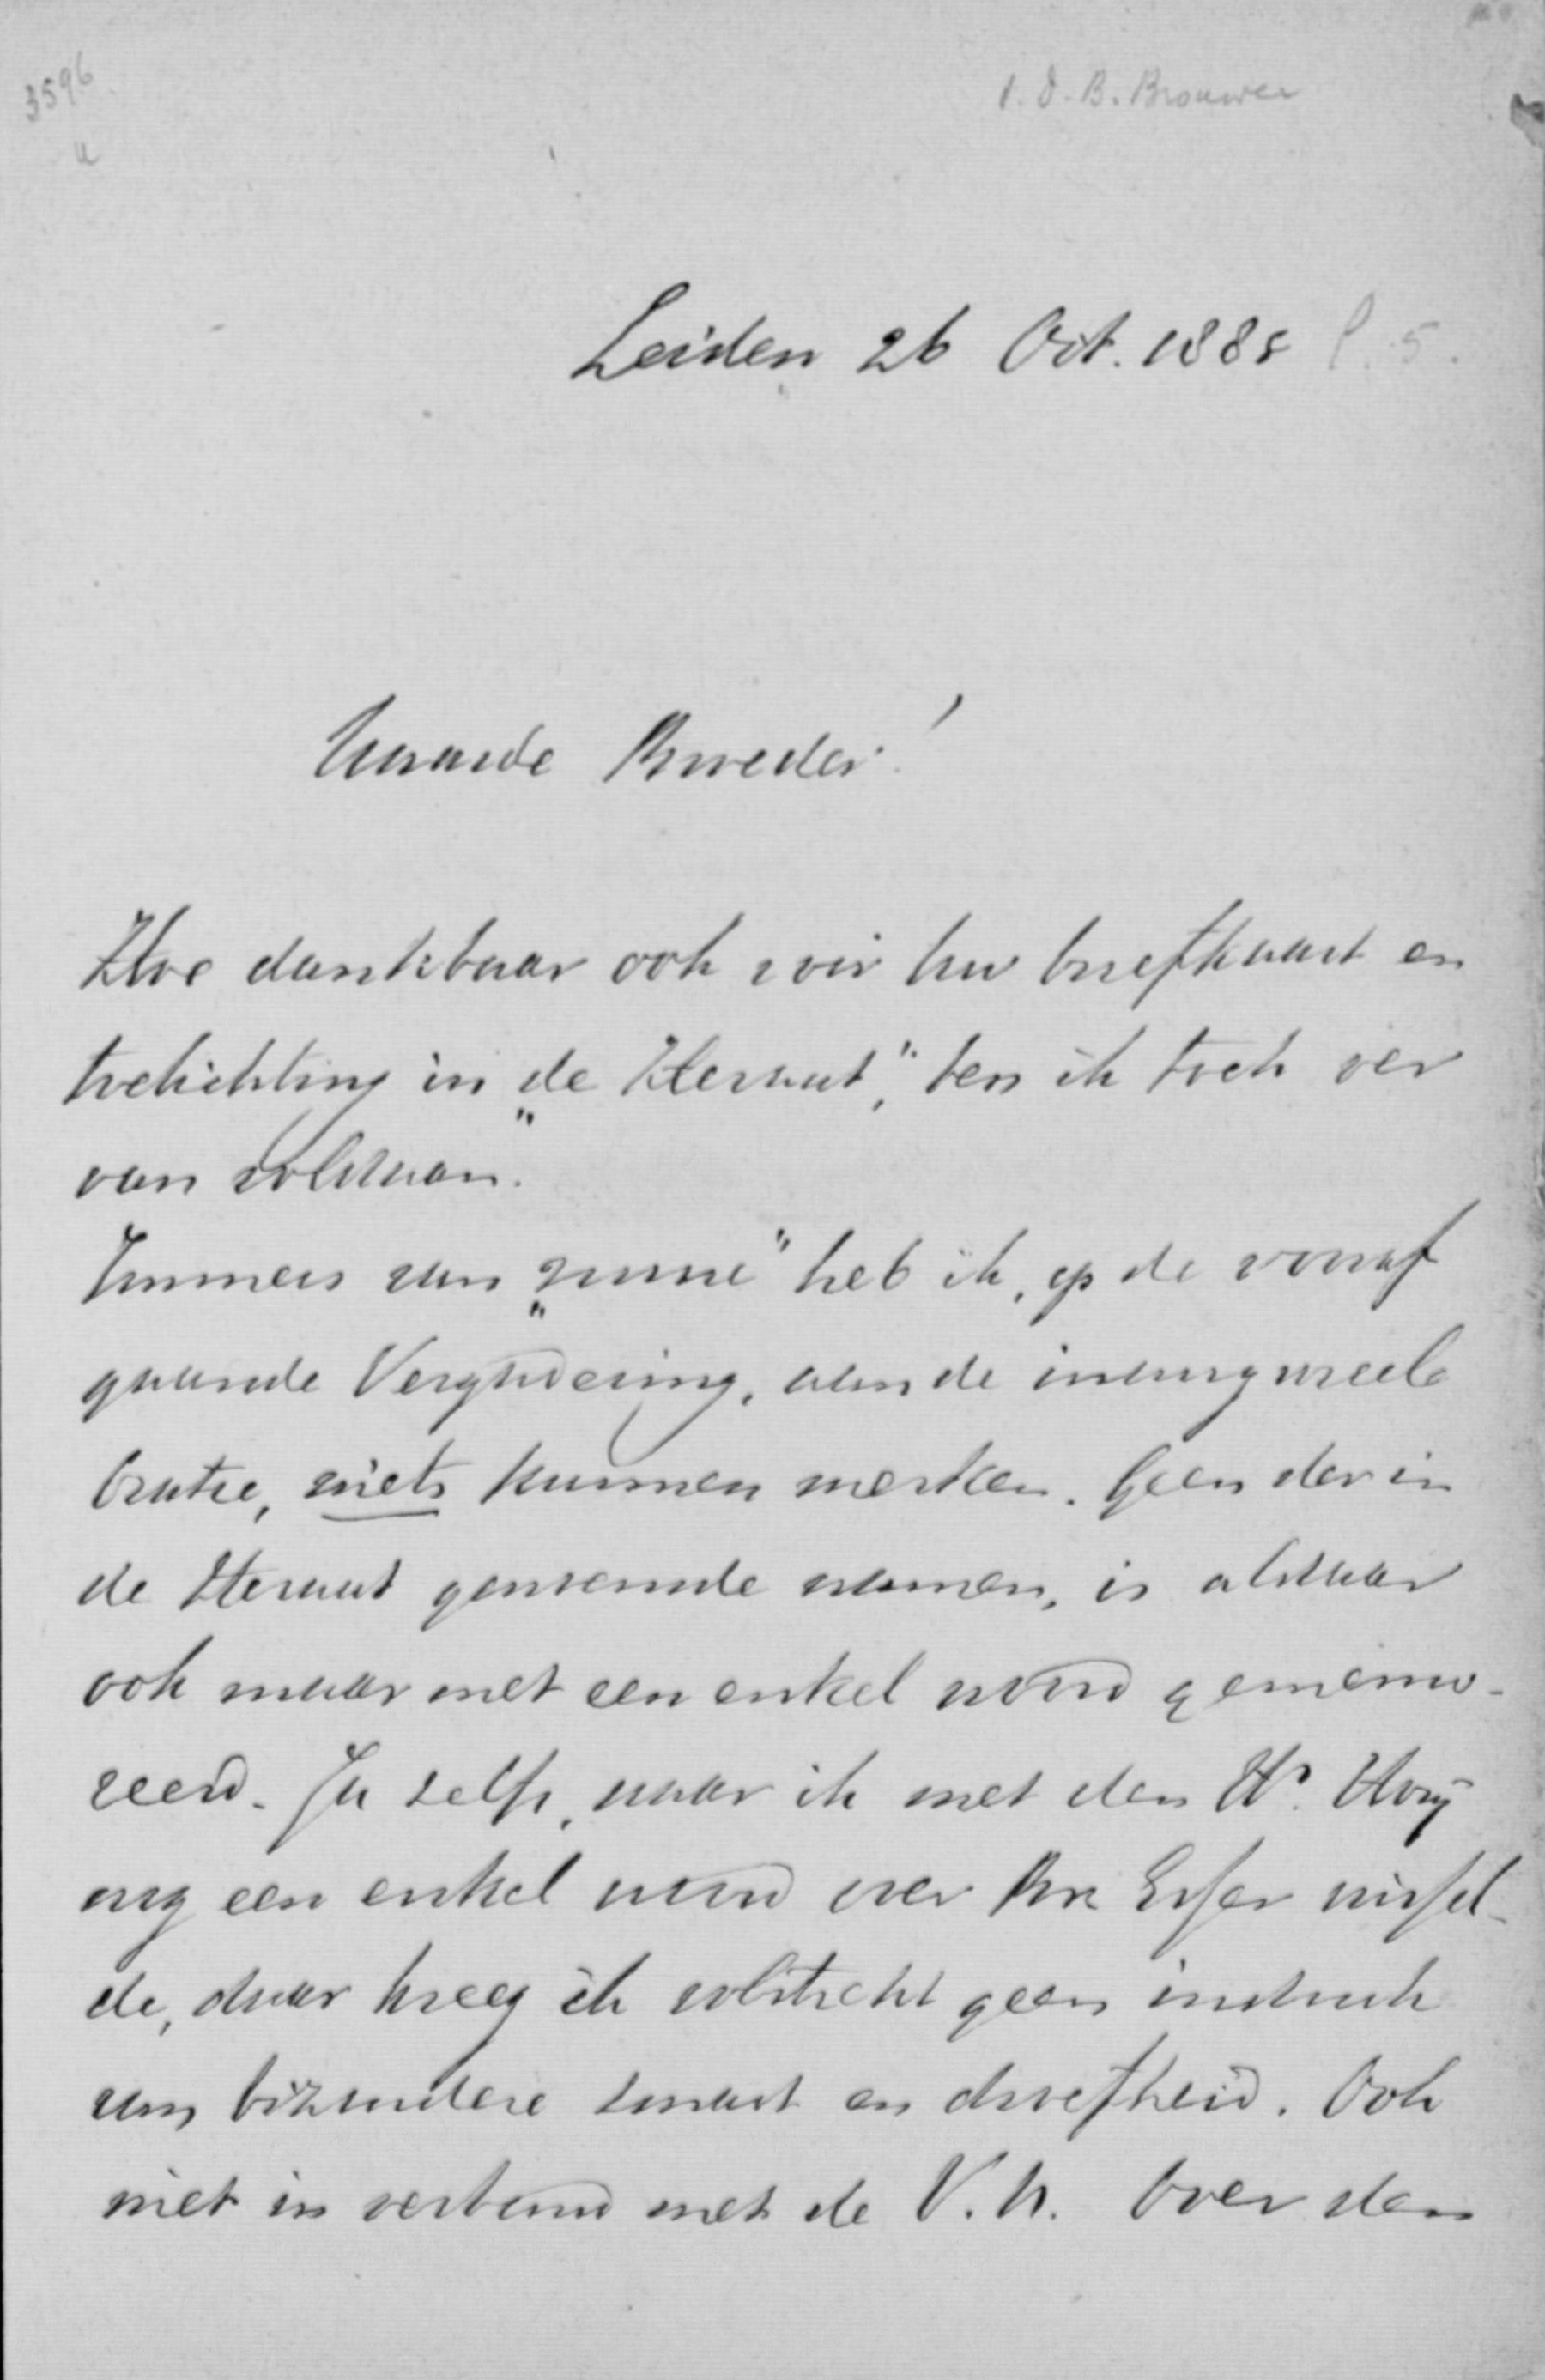 3596
u
P. D. B. Brouwer
Leiden 26 Oct. 1885 P. 5.
Waarde Broeder!
Hoe dankbaar ook voor Uw briefkaart en
toelichting in „de Heraut", ben ik toch ver
van voldaan.
Immers van „rouw" heb ik, op de vooraf
gaande Vergadering, aan de inaugureele
Oratie, niets kunnen merken. Geen der in
de Heraut genoemde namen, is aldaar
ook maar met een enkel woord gememo-
reerd. Ja zelfs, waar ik met den Hr. Hovy
nog een enkel woord over Br. Esser wissel-
de, daar kreeg ik volstrekt geen indruk
van bizondere smart en droefheid. Ook
niet in verband met de V. U. Over den